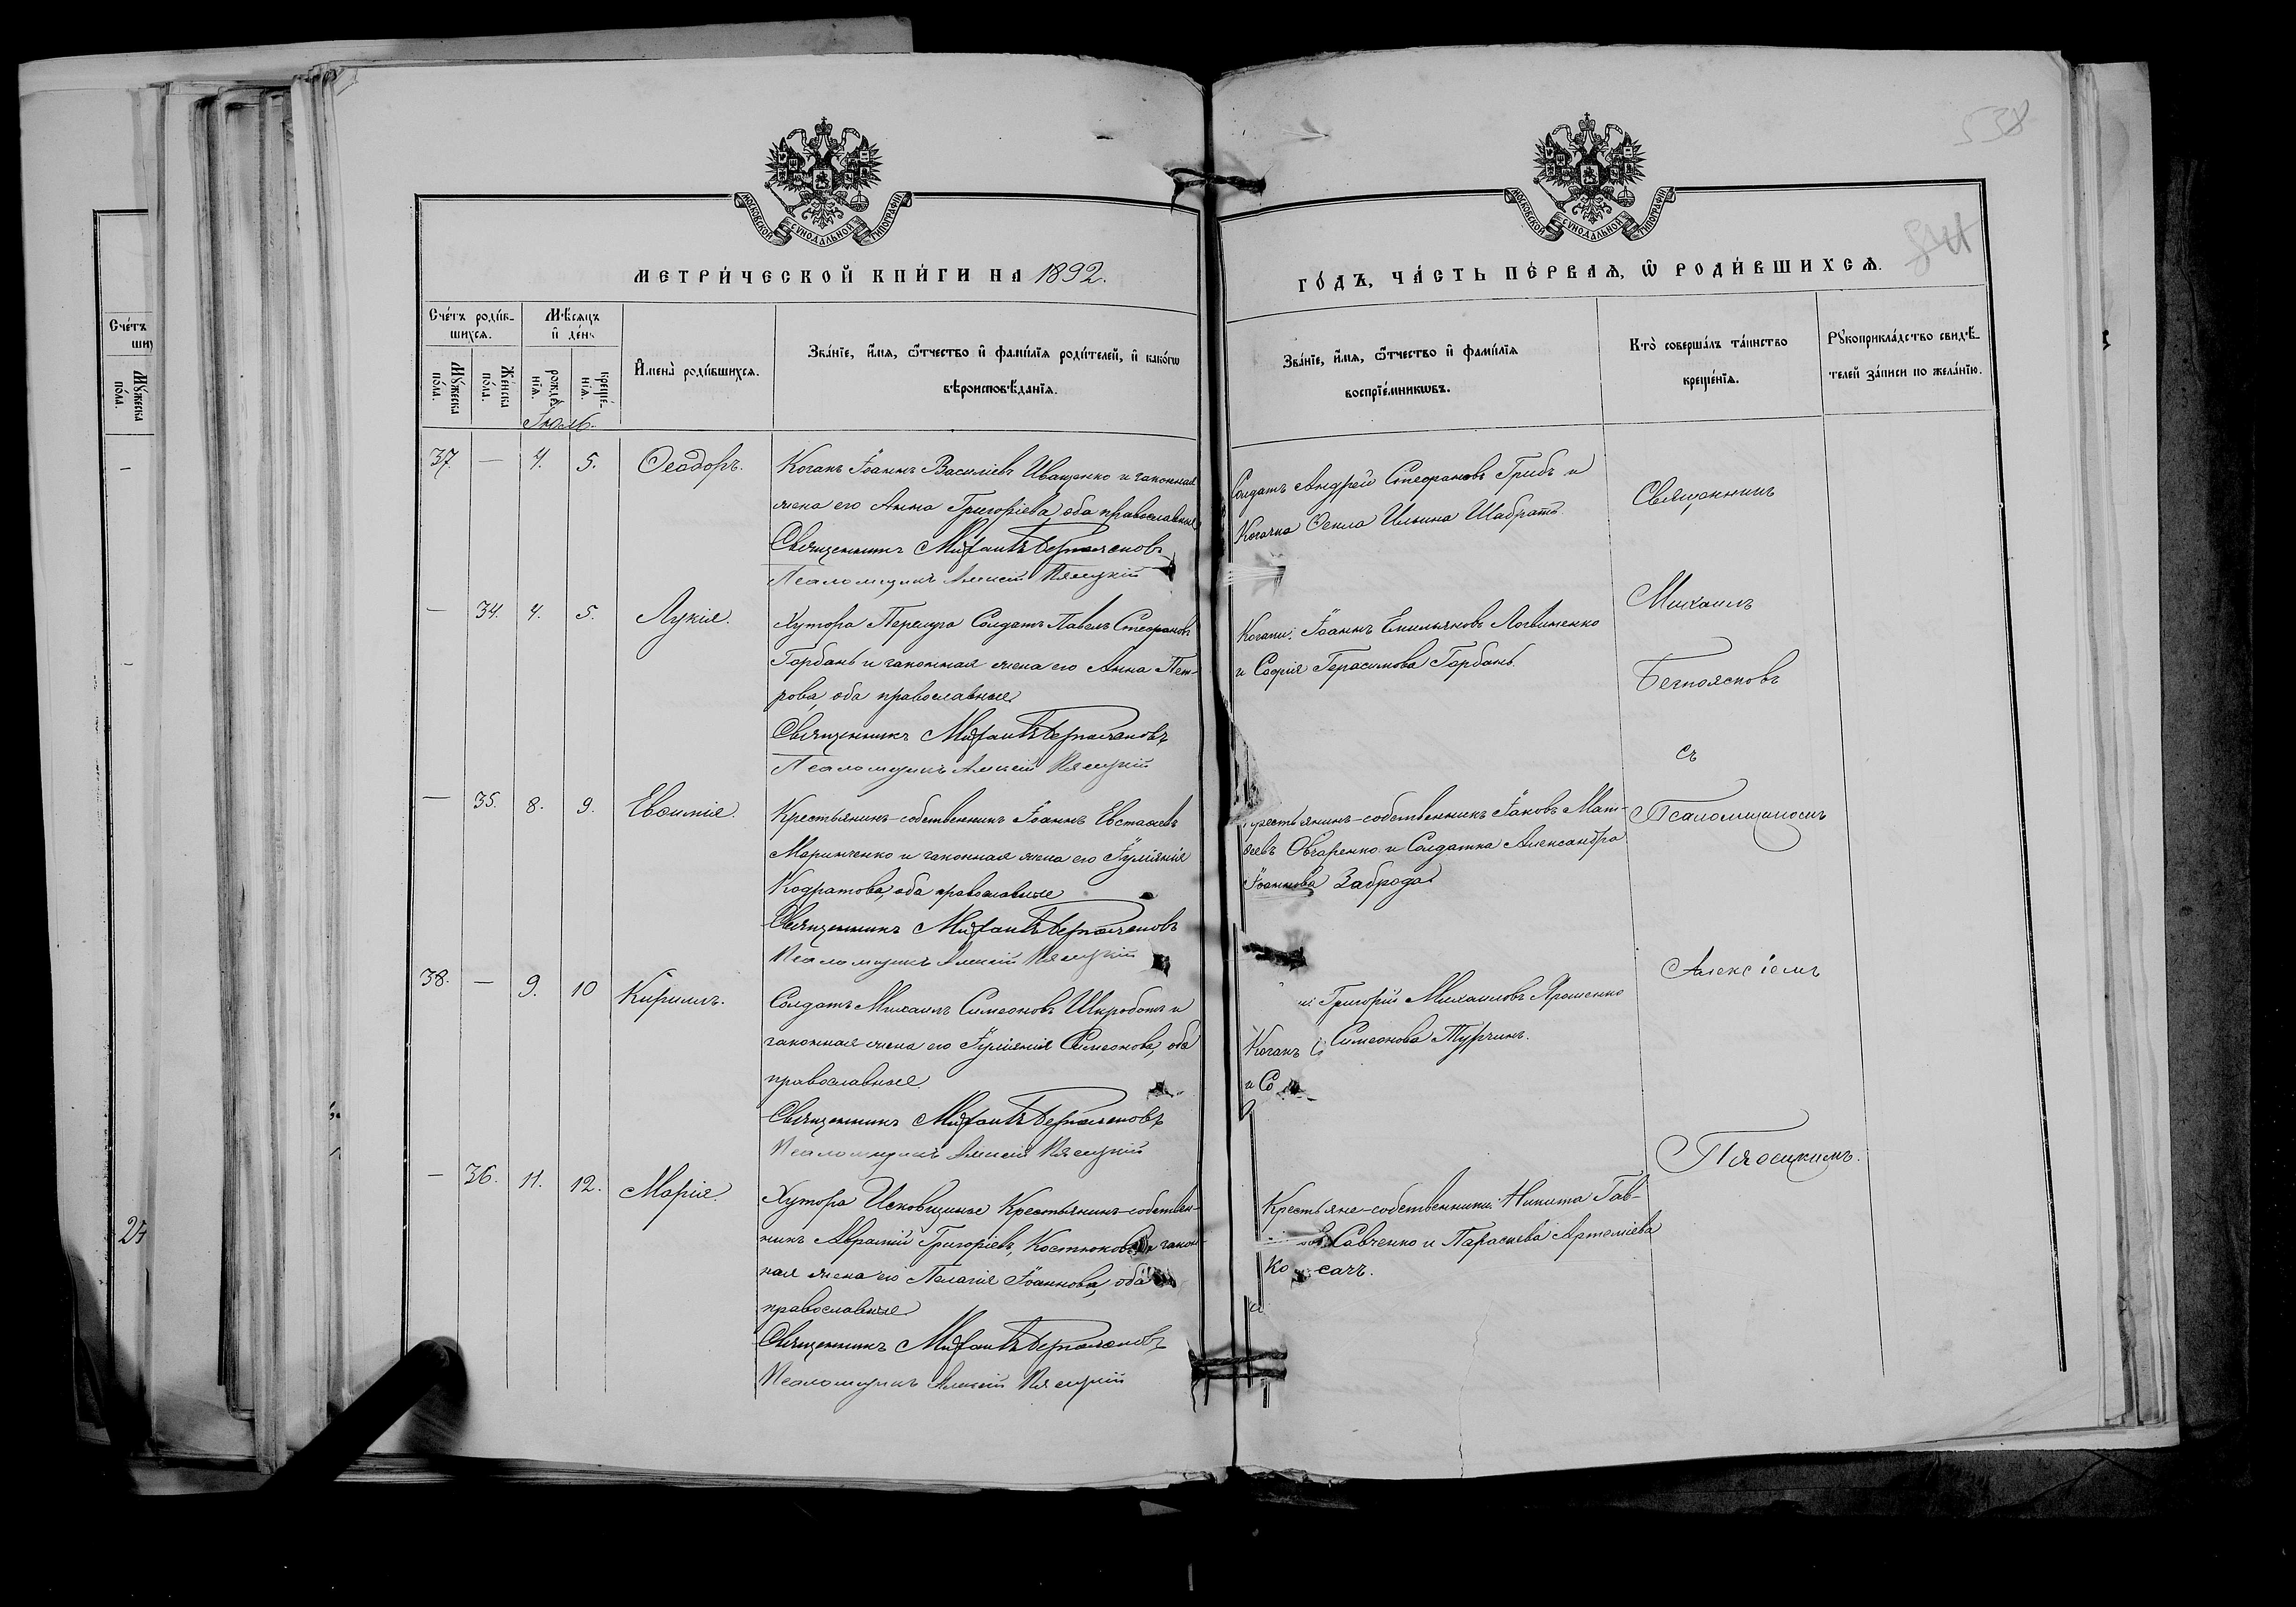 538
МОСКОВСКОЙ СѴНОДАЛЬНОЙ ТИПОГРАФІИ
МОСКОВСКОЙ СѴНОДАЛЬНОЙ ТИПОГРАФІИ
МЕТРИ́ЧЕСКОЙ КНИ́ГИ НА 1892.
ГО́ДЪ, ЧА́СТЬ ПЕ́РВАѦ, Ѡ҆ РОДИ́ВШИХСѦ.
Сче́тъ роди́в-
шихсѧ.
Мꙋ́жеска по́ла.
Же́нска по́ла.
Мѣ́сѧцъ и҆ де́нь
рожде́нїѧ.
креще́нїѧ.
И҆мена̀ роди́вшихсѧ.
Зва́нїе, и҆́мѧ, ѻ҆́тчество и҆ фами́лїѧ роди́телей, и҆ како́гѡ
вѣроисповѣ́данїѧ.
Зва́нїе, и҆́мѧ, ѻ҆́тчество и҆ фами́лїѧ
воспрїе́мникѡвъ.
Кто̀ соверша́лъ та́инство
креще́нїѧ.
Рꙋкоприкла́дство свидѣ́-
телей за́писи по жела́нїю.
Сче́тъ
Мꙋ́жеска по́ла.
Іюль.
37. — 4. 5. Ѳеодоръ.
Козакъ Іоаннъ Василіевъ Иващенко и законная
жена его Анна Григоріева, оба православные
Священникъ Михаилъ Безпоясковъ
Псаломщикъ Алексій Пясецкій
Солдатъ Андрей Стефановъ Грибъ и
Козачка Ѳекла Ильина Шабратъ.
— 34. 4. 5. Лукія.
Хутора Перелуга Солдатъ Павелъ Стефановъ
Горбань и законная жена его Анна Пет-
рова, оба православные
Священникъ Михаилъ Безпоясковъ
Псаломщикъ Алексій Пясецкій
Козаки: Іоаннъ Емильяновъ Логвиненко
и Софія Герасимова Горбань.
— 35. 8. 9. Евѳимія.
Крестьянинъ-собственникъ Іоаннъ Евстафіевъ
Маринченко и законная жена его Іуліянія
Кодратова, оба православные
Священникъ Михаилъ Безпоясковъ
Псаломщикъ Алексій Пясецкій
Крестьянинъ-собственникъ Іаковъ Мат-
ѳеевъ Овчаренко и Солдатка Александра
Іоаннова Заброда.
38. — 9. 10 Кириллъ.
Солдатъ Михаилъ Симеоновъ Шкроботъ и
законная жена его Іуліянія Симеонова, оба
православные
Священникъ Михаилъ Безпоясковъ
Псаломщикъ Алексій Пясецкій
Григорій Михаиловъ Ярошенко
Козакъ Симеонова Турчинъ.
— 36. 11. 12. Марія.
Хутора Исковщинье Крестьянинъ-собствен-
никъ Аврамій Григоріевъ Костюковъ и закон-
ная жена его Пелагія Іоаннова, оба
православные
Священникъ Михаилъ Безпоясковъ
Псаломщикъ Алексій Пясецкій
Крестьяне-собственники: Никита Гав-
Савченко и Параскева Артеміева
Священникъ
Михаилъ
Безпоясковъ
съ
Псаломщикомъ
Алексіемъ
Пясецкимъ.